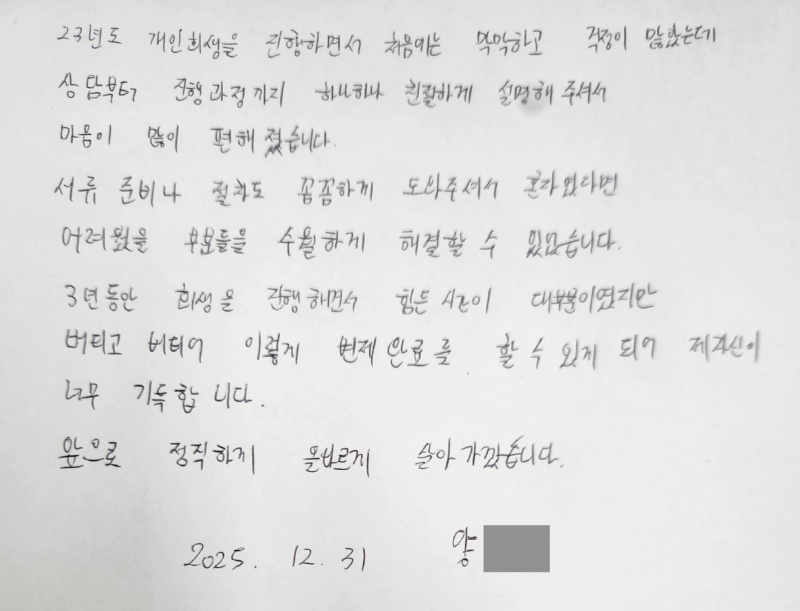 23년도 개인회생을 진행하면서 처음에는 막막하고 걱정이 많았는데
상담부터 진행과정까지 하나하나 친절하게 설명해 주셔서
마음이 많이 편해 졌습니다.
서류 준비나 절차도 꼼꼼하게 도와주셔서 혼자였다면
어려웠을 부분들을 수월하게 해결할 수 있었습니다.
3년동안 회생을 진행해면서 힘든 시간이 대부분이였지만
버티고 버티어 이렇게 변제완료를 할 수 있게 되어 제자신이
너무 기특합니다.
앞으로 정직하게 올바르게 살아가겠습니다.
2025. 12. 31 양